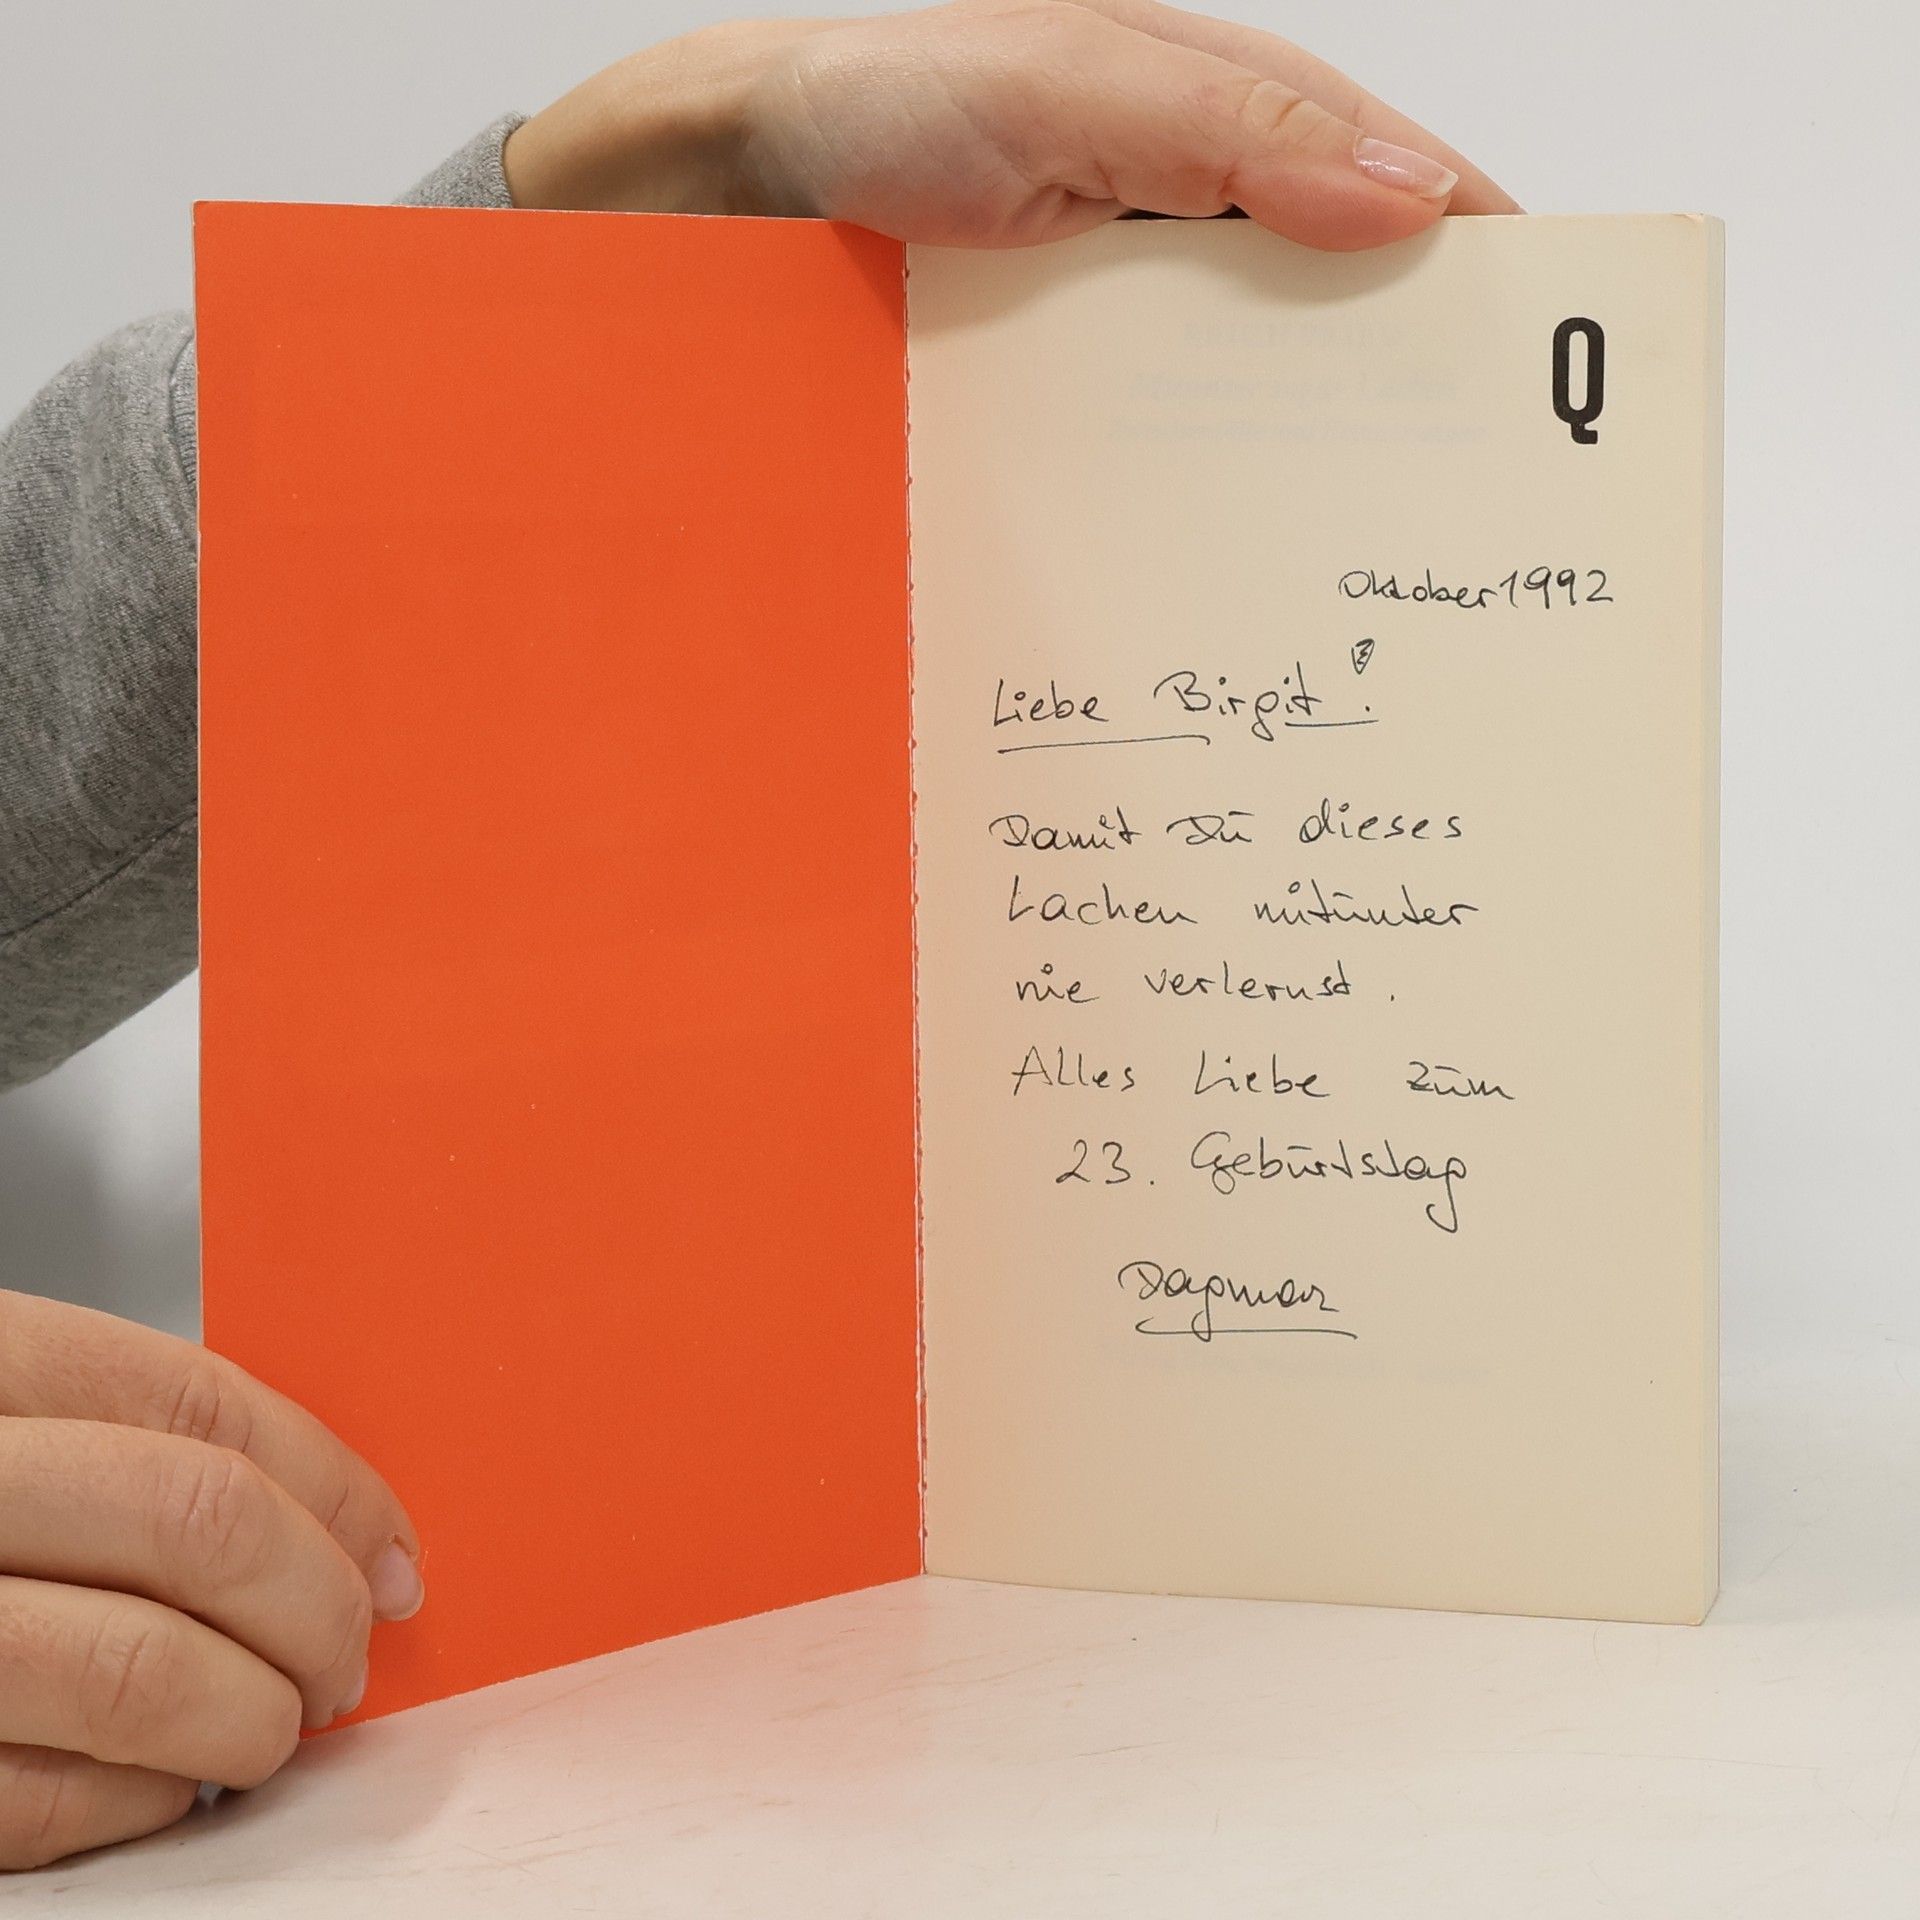 Q
Oktober 1992
Liebe Birgit!
Damit Du dieses
Lachen mitunter
nie verlernst.
Alles Liebe zum
23. Geburtstag
Dagmar